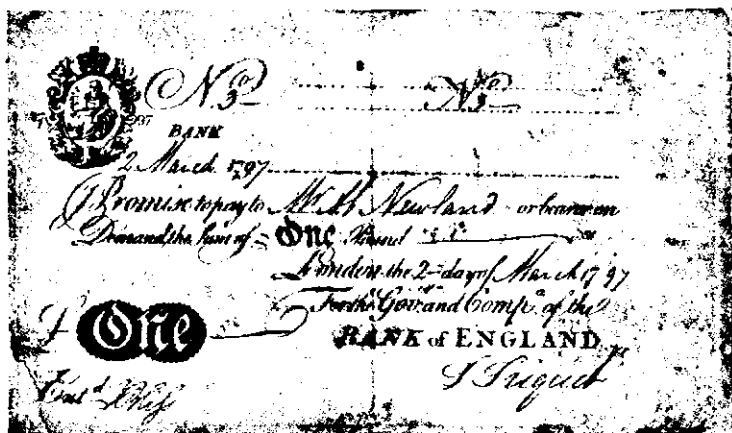 No 3 No 3
BANK
2 March 1797
I Promise to pay to Mr Ab. Newland or bearer on
Demand the Sum of One Pound
London the 2 day of March 1797
For the Gov: and Compa. of the
BANK of ENGLAND
£ One
Entd